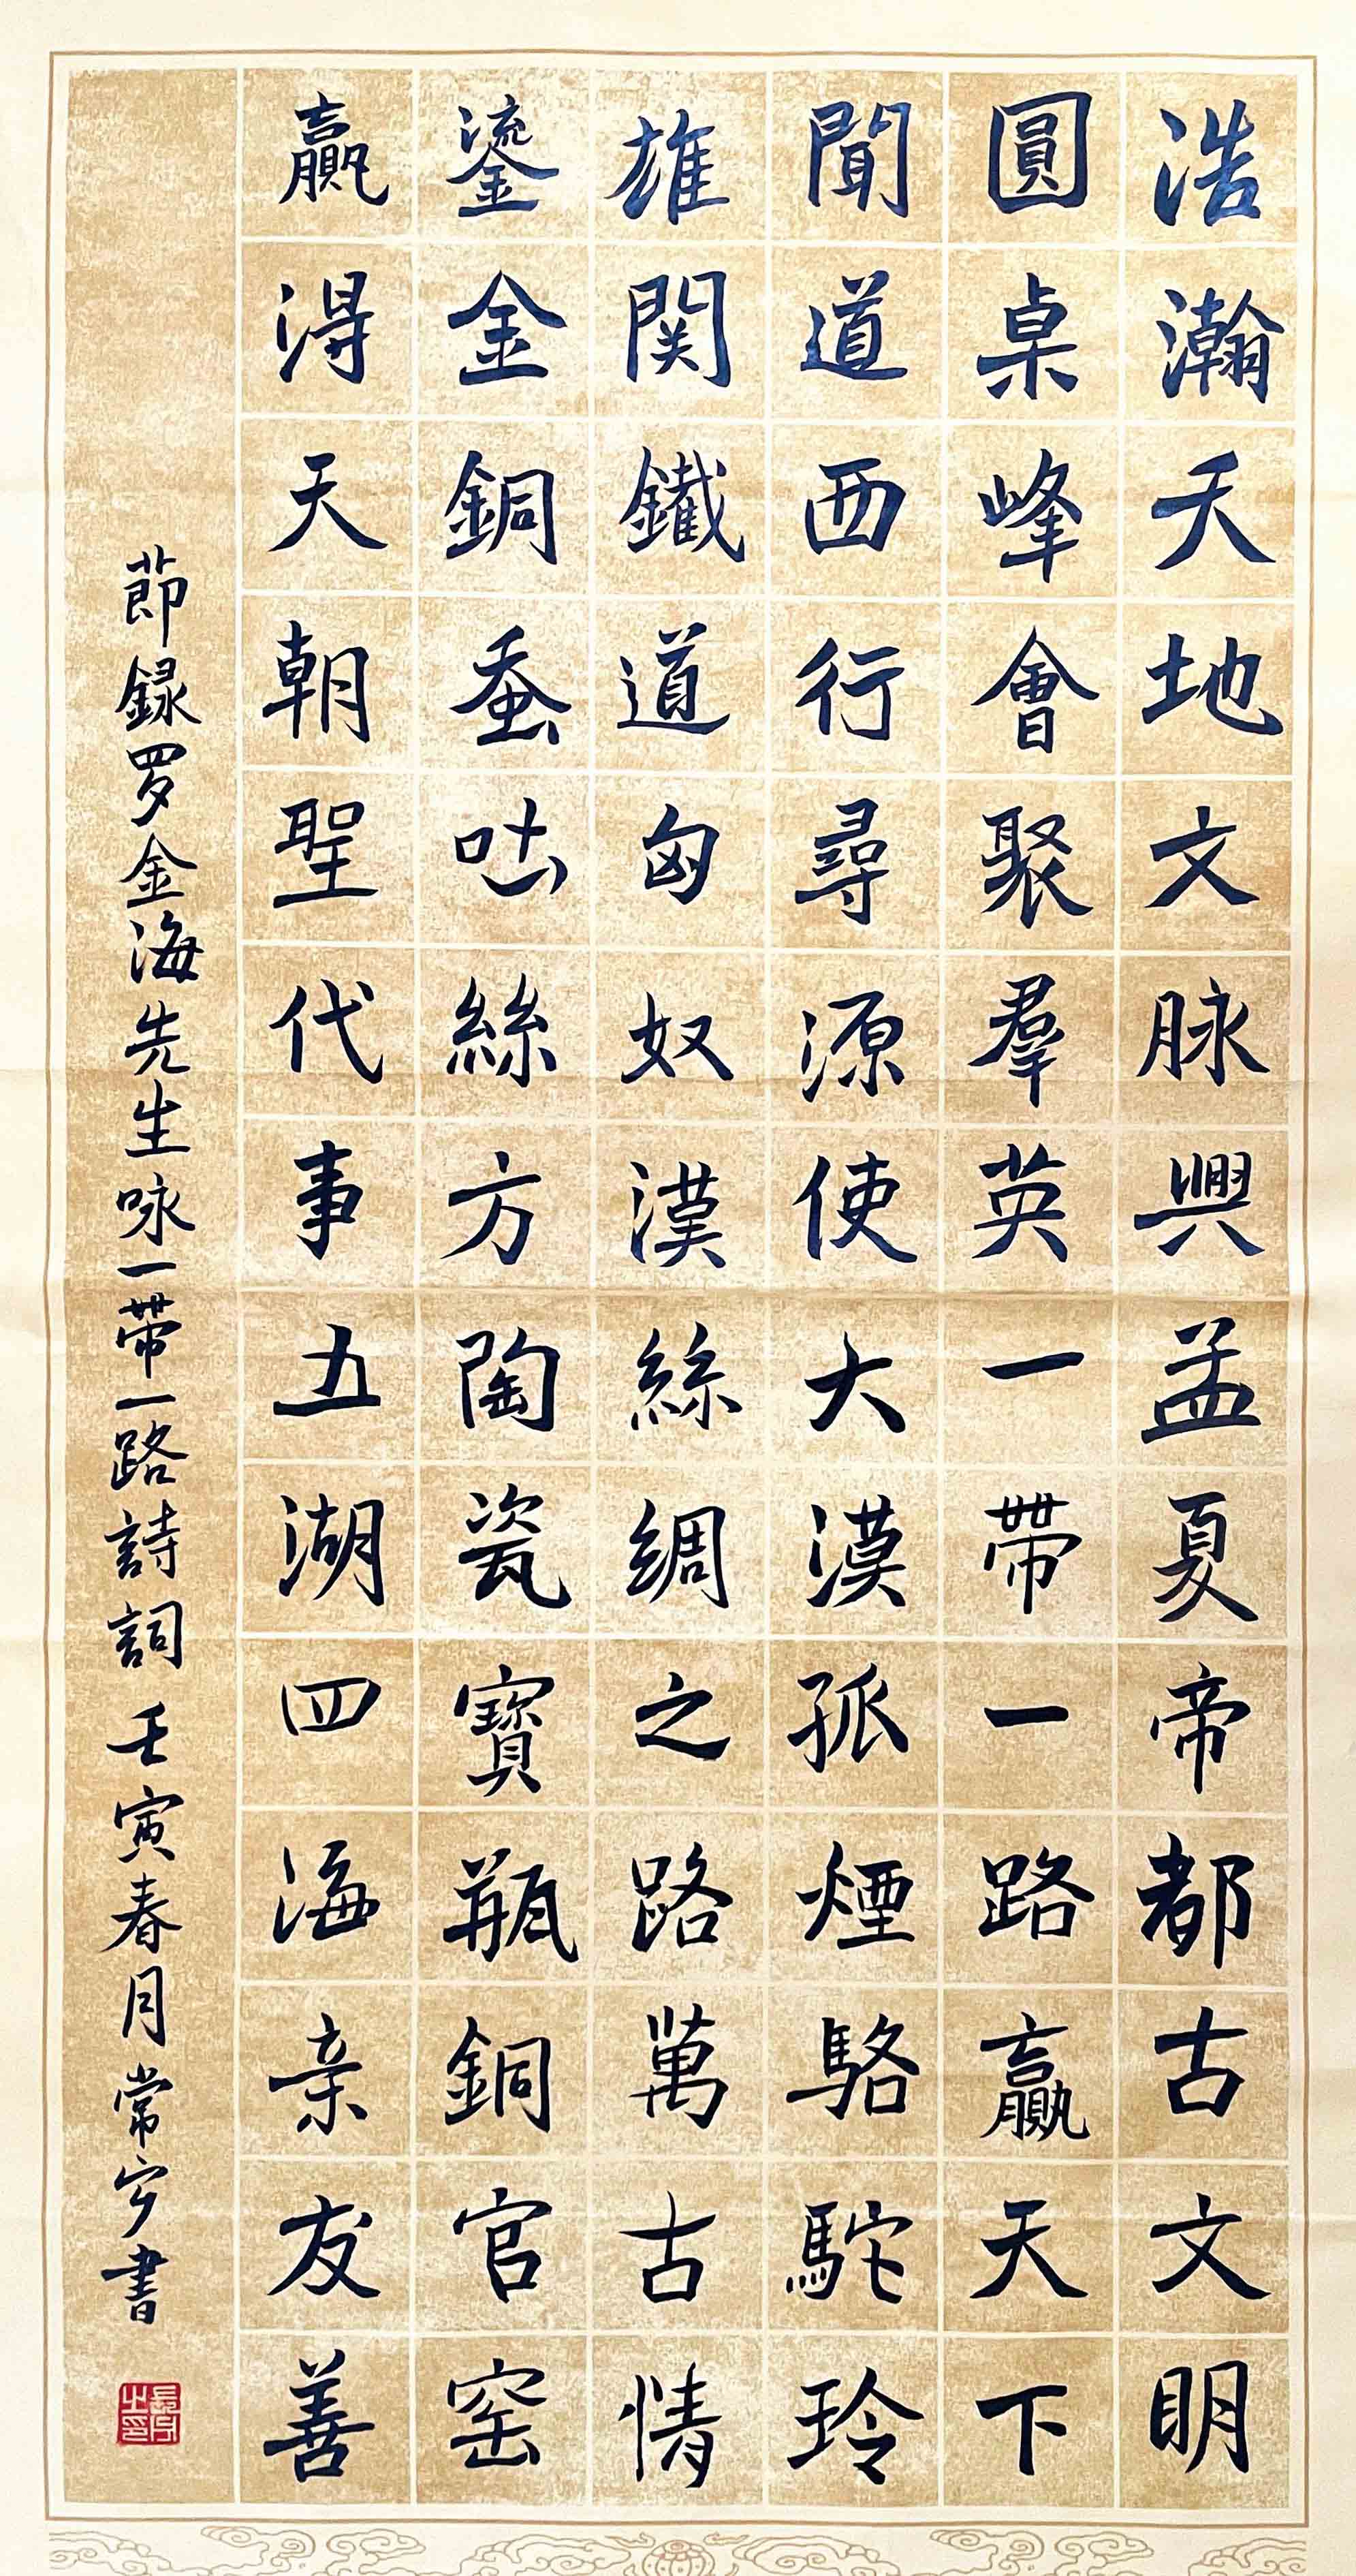 浩瀚天地文脉興孟夏帝都古文明
圓桌峰會聚羣英一带一路贏天下
聞道西行尋源使大漠孤煙駱駝玲
雄関鐵道匈奴漢絲綢之路萬古情
鎏金銅蚕吐絲方陶瓷寶瓶銅官窑
贏淂天朝聖代事五湖四海亲友善
節録罗金海先生咏一带一路詩詞壬寅春月常宁書